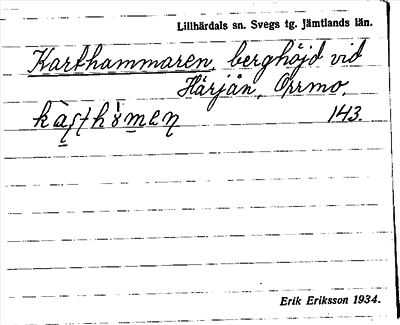 Lillhärdals sn. Svegs tg. Jämtlands län.
Karthammaren, berghöjd vid
Härjån, Orrmo.
143.
Erik Eriksson 1934.